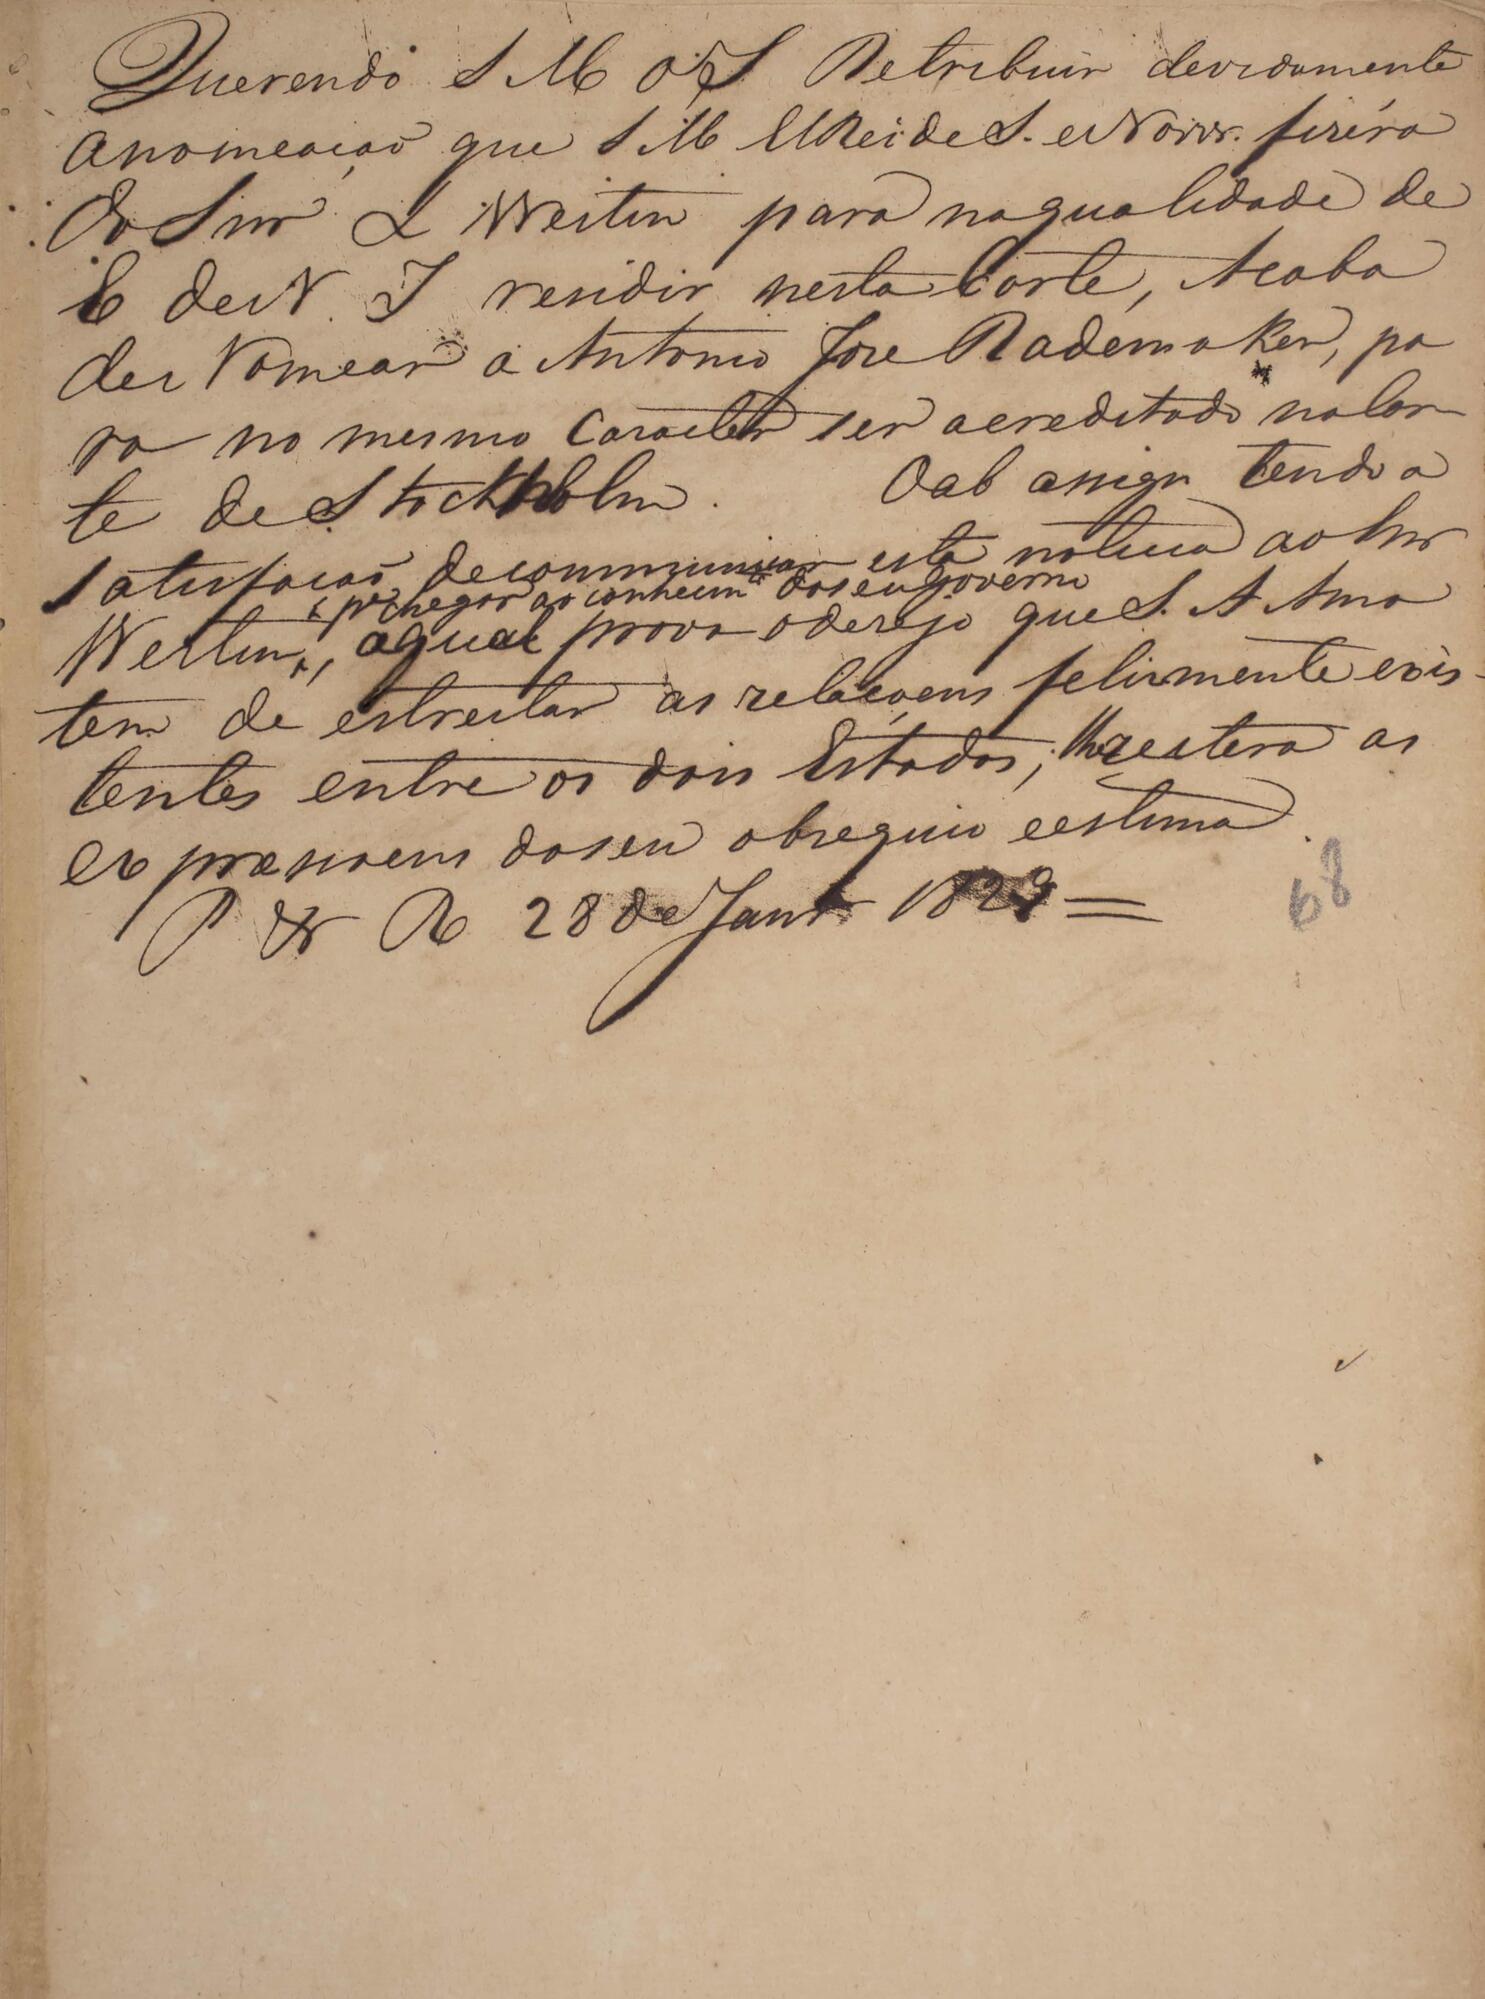 Querendo S M O I Retribuir devidamente
a nomeação que S M ElRei de S. e Norw. fizéra
do Snr L Westin para na qualidade de
E de N. I residir nesta Corte, Acaba
de Nomear a Antonio Joze Rademaker, pa
ra no mesmo Caracter ser acreditado na Cor
te de Stockholm. O ab assign tendo a
satisfação de communicar esta noticia ao Snr
e pa chegar ao conhecim to do seu Governo
Westin, a qual prova o desejo que S. A Amo
tem de estreitar as relaçoens felizmente exis-
tentes entre os dois Estados, reitera as
expressoens do seu obsequio e estima.
P & R 28 de Janr 1829 =
68